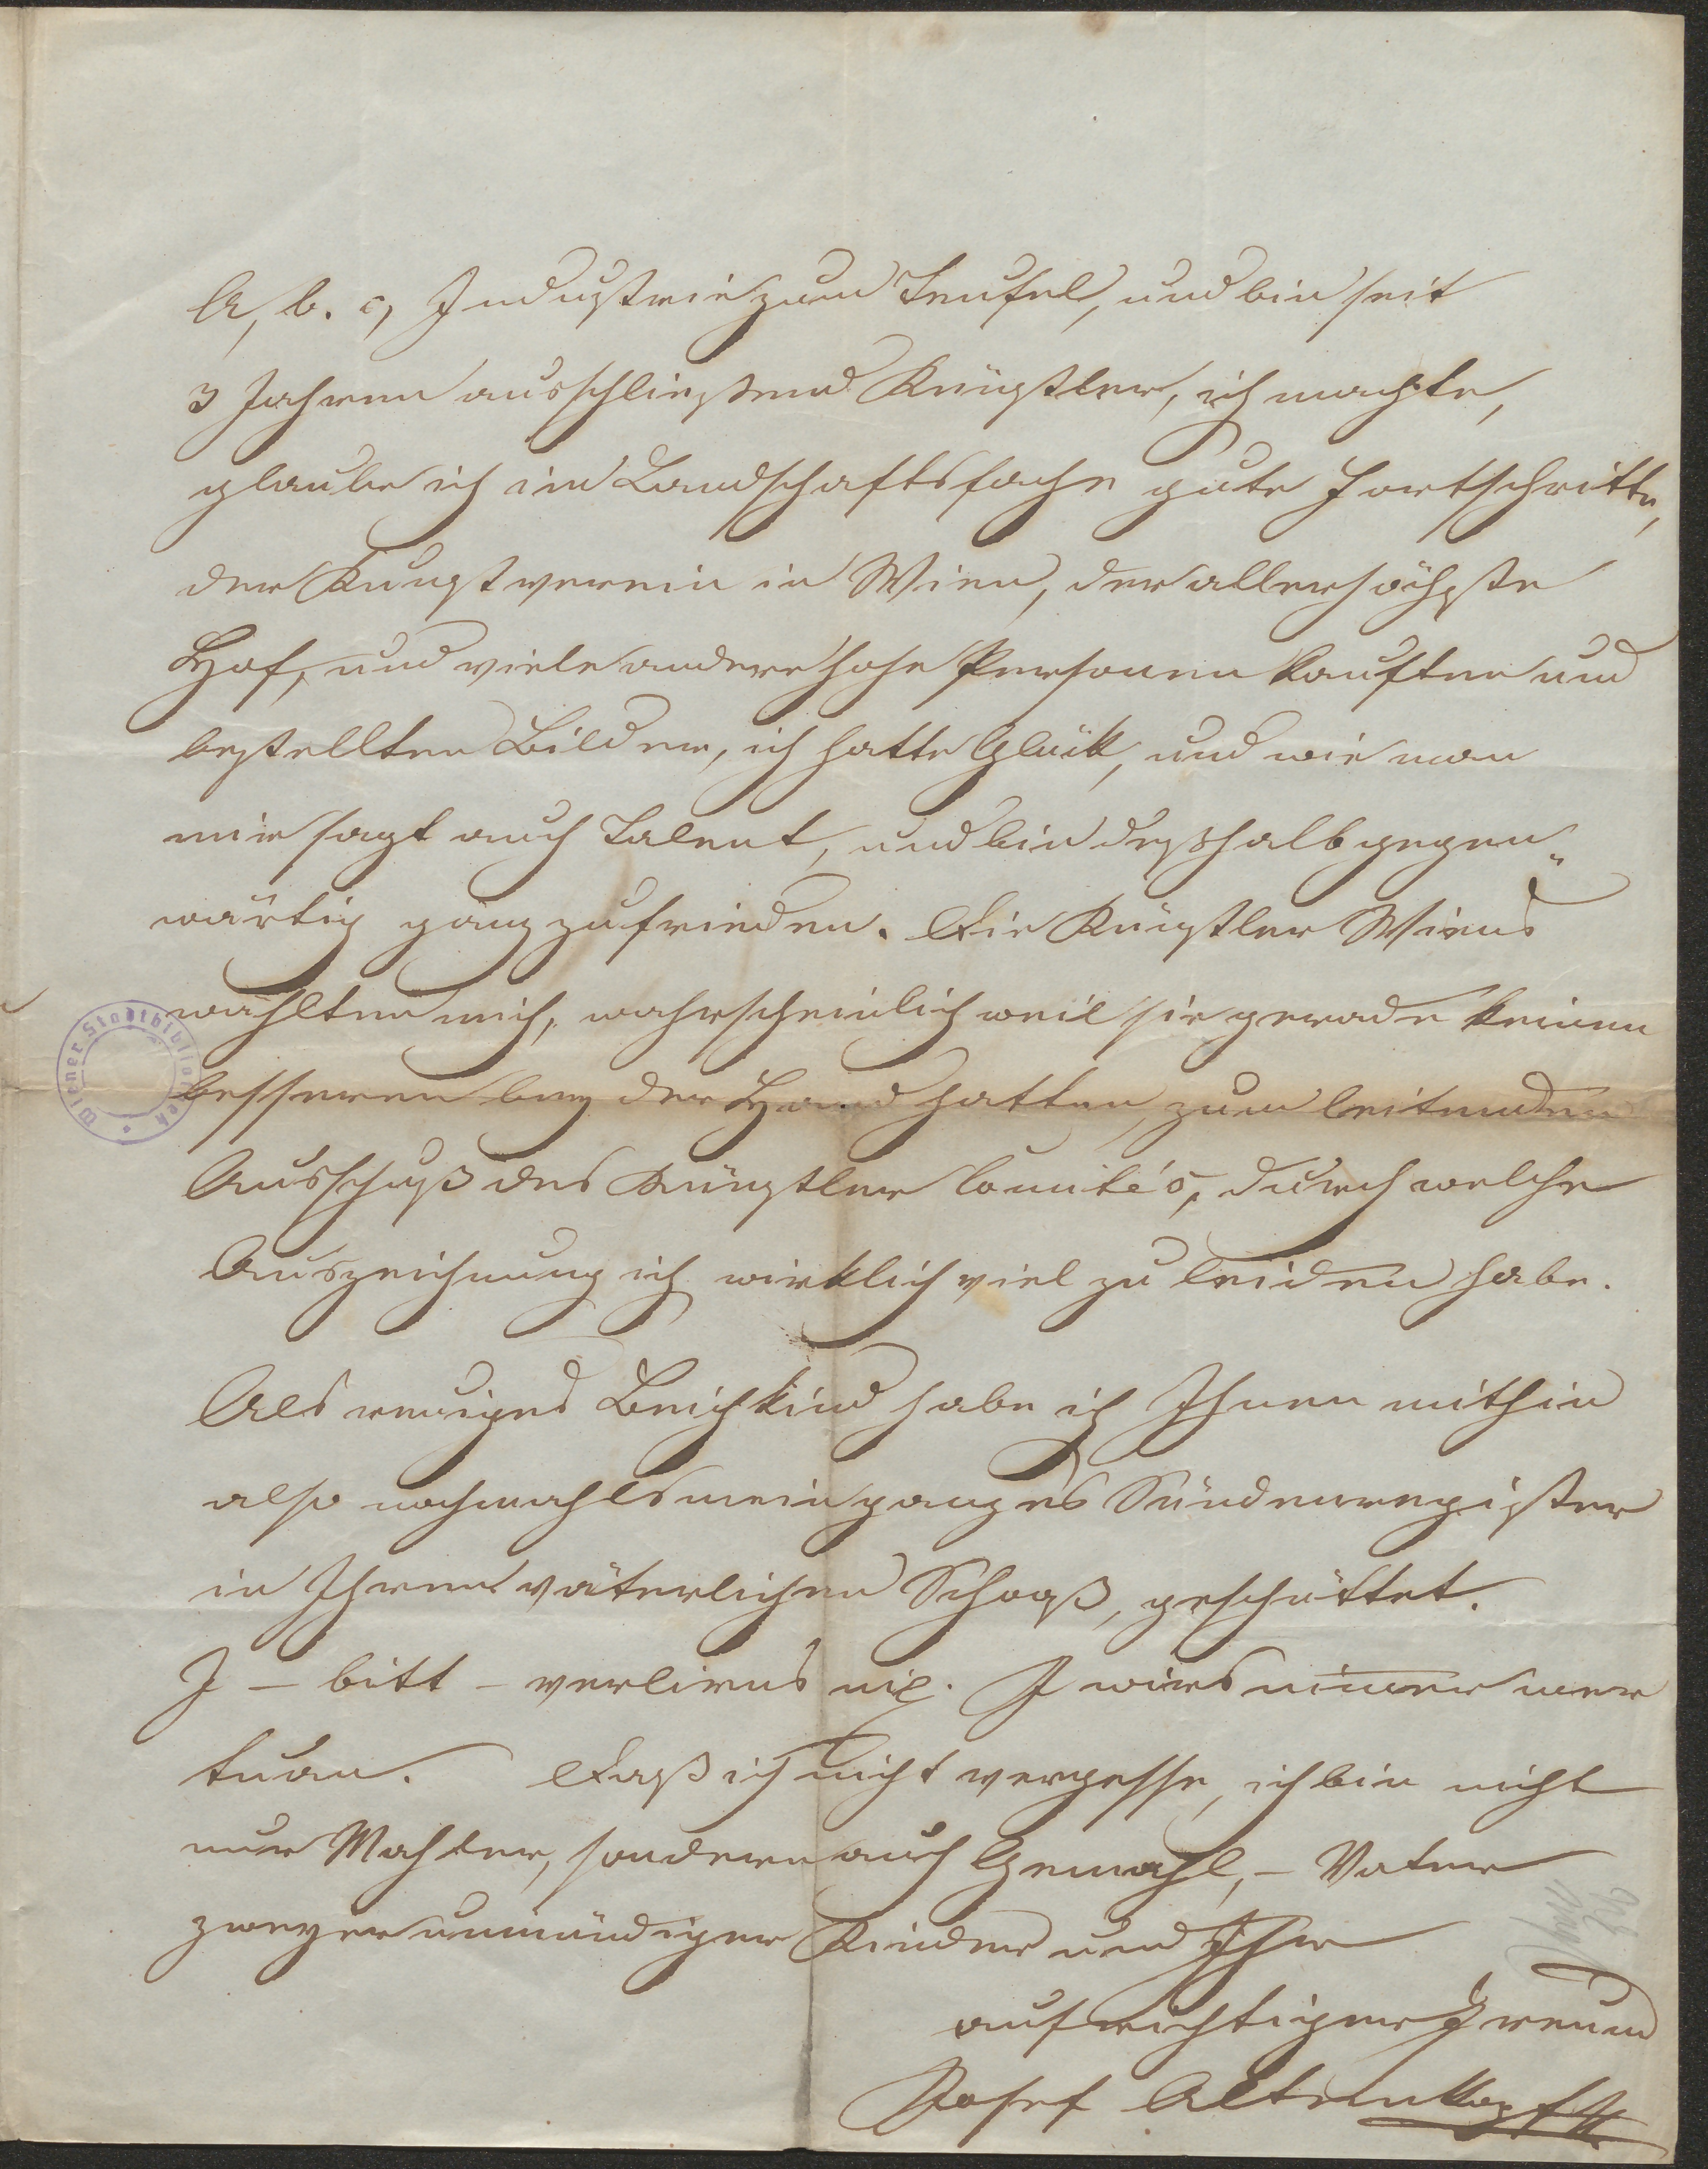 A, b. c, Industrie zum Teufel, und bin seit
3 Jahren ausschließend Künstler, ich machte,
glaube ich im Landschaftsfache gute Fortschritte,
der Kunstverein in Wien, der allerhöchste
Hof, und viele andere hohe Personen kauften und
bestellten Bilder, ich hatte Glük, und wie man
mir sagt auch Talent, und bin deßhalb gegen„
wärtig ganz zufrieden. Die Künstler Wiens
wählten mich, wahrscheinlich weil sie gerade keinen
besseren bey der Hand hatten, zum leitenden
Ausschuß des Künstler Comité's, durch welche
Auszeichnung ich wirklich viel zu leiden habe.
Als reuiges Beichkind habe ich Ihnen mithin
also nochmahls mein ganzes Sündenregister
in Ihren väterlichen Schooß, geschüttet.
I – bitt – verlirns nix. I wirs nimer mer
tuan. Daß ich nicht vergesse, ich bin nicht
nur Mahler, sondern auch Gemahl, – Vater
zweyer unmündiger Kinder und Ihr
aufrichtiger Freund
Josef Altenkopf
Wiener Stadtbibliothek